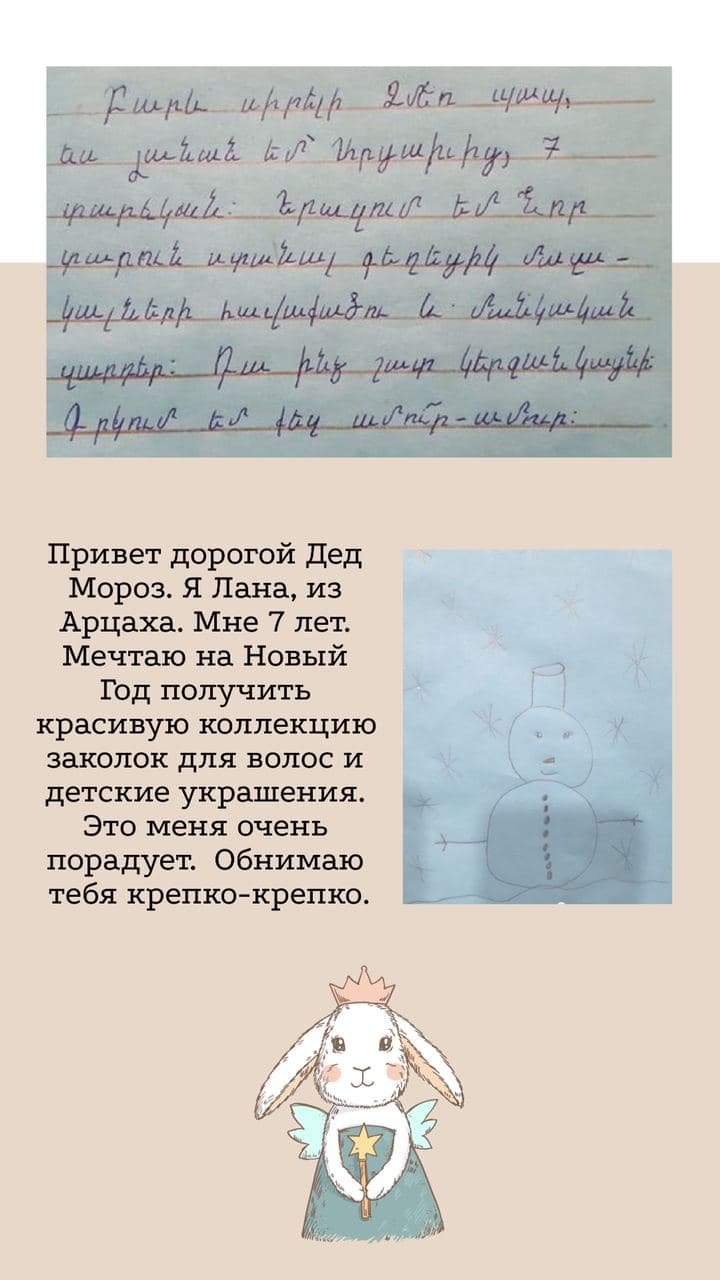 Բարև սիրելի Ձմեռ պապ,
ես Լանան եմ՝ Արցախից, 7
տարեկան: Երազում եմ Նոր
տարուն ստանալ գեղեցիկ մազա-
կալների հավաքածու և մանկական
զարդեր: Դա ինձ շատ կերջանկացնի:
Գրկում եմ քեզ ամո՜ւր-ամուր:
Привет дорогой Дед
Мороз. Я Лана, из
Арцаха. Мне 7 лет.
Мечтаю на Новый
Год получить
красивую коллекцию
заколок для волос и
детские украшения.
Это меня очень
порадует. Обнимаю
тебя крепко-крепко.